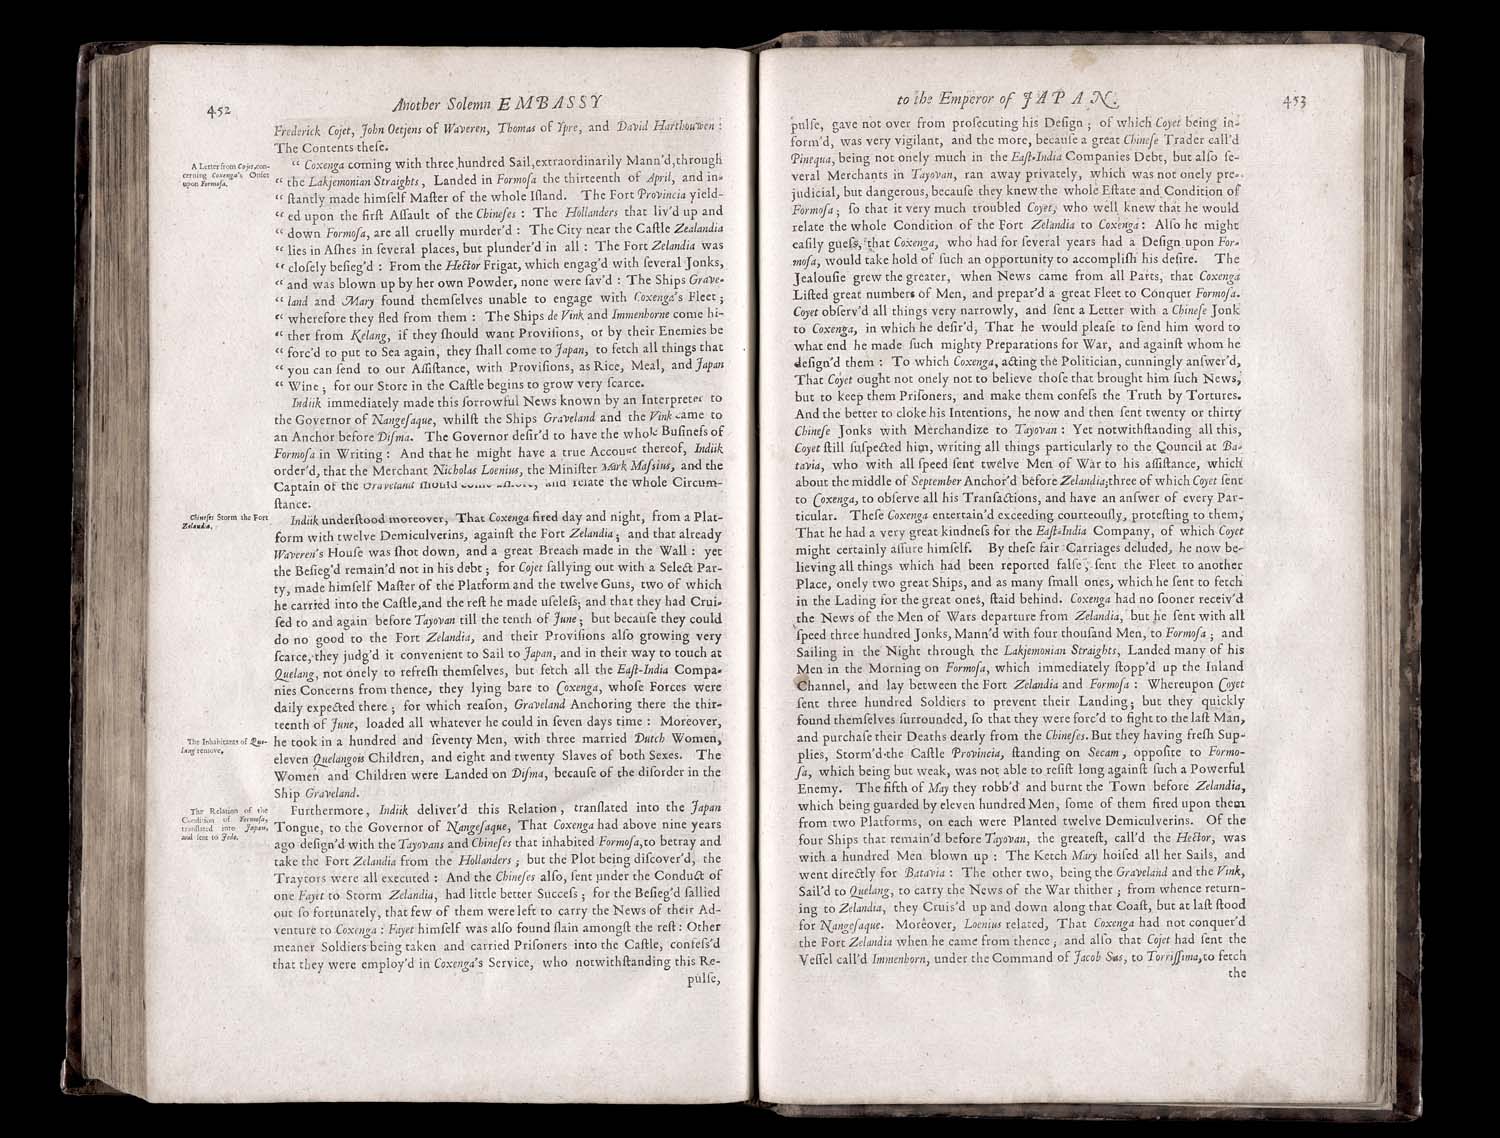 452
Another Solemn EMBASSY
Frederick Cojet, John Oetjens of Waveren, Thomas of Ypre, and David Harthouwen :
The Contents theſe.
A Letter from Cojet, con-
cerning Coxenga's Onſet
upon Formoſa.
“ Coxenga coming with three hundred Sail, extraordinarily Mann'd, through
“ the Lakjemonian Straights, Landed in Formoſa the thirteenth of April, and in-
“ ſtantly made himſelf Maſter of the whole Iſland. The Fort Provincia yield-
“ ed upon the firſt Aſſault of the Chineſes : The Hollanders that liv'd up and
“ down Formoſa, are all cruelly murder'd : The City near the Caſtle Zealandia
“ lies in Aſhes in ſeveral places, but plunder'd in all : The Fort Zelandia was
“ cloſely beſieg'd : From the Hector Frigat, which engag'd with ſeveral Jonks,
“ and was blown up by her own Powder, none were ſav'd : The Ships Grave-
“ land and Mary found themſelves unable to engage with Coxenga's Fleet ;
“ wherefore they fled from them : The Ships de Vink and Immenhorne come hi-
“ ther from Kelang, if they ſhould want Proviſions, or by their Enemies be
“ forc'd to put to Sea again, they ſhall come to Japan, to fetch all things that
“ you can ſend to our Aſſiſtance, with Proviſions, as Rice, Meal, and Japan
“ Wine ; for our Store in the Caſtle begins to grow very ſcarce.
Indiik immediately made this ſorrowful News known by an Interpreter to
the Governor of Nangeſaque, whilſt the Ships Graveland and the Vink came to
an Anchor before Diſma. The Governor deſir'd to have the whole Buſineſs of
Formoſa in Writing : And that he might have a true Account thereof, Indiik
order'd, that the Merchant Nicholas Loenius, the Miniſter Mark Maſsius, and the
Captain of the Graveland ſhould come aſhore, and relate the whole Circum-
ſtance.
Chineſes Storm the Fort
Zelandia.
Indiik underſtood moreover, That Coxenga fired day and night, from a Plat-
form with twelve Demiculverins, againſt the Fort Zelandia ; and that already
Waveren's Houſe was ſhot down, and a great Breach made in the Wall : yet
the Beſieg'd remain'd not in his debt ; for Cojet ſallying out with a Select Par-
ty, made himſelf Maſter of the Platform and the twelve Guns, two of which
he carried into the Caſtle, and the reſt he made uſeleſs; and that they had Crui-
ſed to and again before Tayovan till the tenth of June ; but becauſe they could
do no good to the Fort Zelandia, and their Proviſions alſo growing very
ſcarce, they judg'd it convenient to Sail to Japan, and in their way to touch at
Quelang, not onely to refreſh themſelves, but fetch all the Eaſt-India Compa-
nies Concerns from thence, they lying bare to Coxenga, whoſe Forces were
daily expected there ; for which reaſon, Graveland Anchoring there the thir-
teenth of June, loaded all whatever he could in ſeven days time : Moreover,
The Inhabitants of Que-
lang remove.
he took in a hundred and ſeventy Men, with three married Dutch Women,
eleven Quelangois Children, and eight and twenty Slaves of both Sexes. The
Women and Children were Landed on Diſma, becauſe of the diſorder in the
Ship Graveland.
The Relation of the
Condition of Formoſa,
tranſlated into Japan,
and ſent to Jedo.
Furthermore, Indiik deliver'd this Relation, tranſlated into the Japan
Tongue, to the Governor of Nangeſaque, That Coxenga had above nine years
ago deſign'd with the Tayovans and Chineſes that inhabited Formoſa, to betray and
take the Fort Zelandia from the Hollanders ; but the Plot being diſcover'd, the
Traytors were all executed : And the Chineſes alſo, ſent under the Conduct of
one Fayet to Storm Zelandia, had little better Succeſs ; for the Beſieg'd ſallied
out ſo fortunately, that few of them were left to carry the News of their Ad-
venture to Coxenga : Fayet himſelf was alſo found ſlain amongſt the reſt : Other
meaner Soldiers being taken and carried Priſoners into the Caſtle, confeſs'd
that they were employ'd in Coxenga's Service, who notwithſtanding this Re-
pulſe,
to the Emperor of JAPAN.
453
pulſe, gave not over from proſecuting his Deſign ; of which Coyet being in-
form'd, was very vigilant, and the more, becauſe a great Chineſe Trader call'd
Pinequa, being not onely much in the Eaſt-India Companies Debt, but alſo ſe-
veral Merchants in Tayovan, ran away privately, which was not onely pre-
judicial, but dangerous, becauſe they knew the whole Eſtate and Condition of
Formoſa ; ſo that it very much troubled Coyet, who well knew that he would
relate the whole Condition of the Fort Zelandia to Coxenga : Alſo he might
eaſily gueſs, that Coxenga, who had for ſeveral years had a Deſign upon For-
moſa, would take hold of ſuch an opportunity to accompliſh his deſire. The
Jealouſie grew the greater, when News came from all Parts, that Coxenga
Liſted great numbers of Men, and prepar'd a great Fleet to Conquer Formoſa.
Coyet obſerv'd all things very narrowly, and ſent a Letter with a Chineſe Jonk
to Coxenga, in which he deſir'd, That he would pleaſe to ſend him word to
what end he made ſuch mighty Preparations for War, and againſt whom he
deſign'd them : To which Coxenga, acting the Politician, cunningly anſwer'd,
That Coyet ought not onely not to believe thoſe that brought him ſuch News,
but to keep them Priſoners, and make them confeſs the Truth by Tortures.
And the better to cloke his Intentions, he now and then ſent twenty or thirty
Chineſe Jonks with Merchandize to Tayovan : Yet notwithſtanding all this,
Coyet ſtill ſuſpected him, writing all things particularly to the Council at Ba-
tavia, who with all ſpeed ſent twelve Men of War to his aſſiſtance, which
about the middle of September Anchor'd before Zelandia; three of which Coyet ſent
to Coxenga, to obſerve all his Tranſactions, and have an anſwer of every Par-
ticular. Theſe Coxenga entertain'd exceeding courteouſly, proteſting to them,
That he had a very great kindneſs for the Eaſt-India Company, of which Coyet
might certainly aſſure himſelf. By theſe fair Carriages deluded, he now be-
lieving all things which had been reported falſe, ſent the Fleet to another
Place, onely two great Ships, and as many ſmall ones, which he ſent to fetch
in the Lading for the great ones, ſtaid behind. Coxenga had no ſooner receiv'd
the News of the Men of Wars departure from Zelandia, but he ſent with all
ſpeed three hundred Jonks, Mann'd with four thouſand Men, to Formoſa ; and
Sailing in the Night through the Lakjemonian Straights, Landed many of his
Men in the Morning on Formoſa, which immediately ſtopp'd up the Inland
Channel, and lay between the Fort Zelandia and Formoſa : Whereupon Coyet
ſent three hundred Soldiers to prevent their Landing ; but they quickly
found themſelves ſurrounded, ſo that they were forc'd to fight to the laſt Man,
and purchaſe their Deaths dearly from the Chineſes. But they having freſh Sup-
plies, Storm'd the Caſtle Provincia, ſtanding on Secam, oppoſite to Formo-
ſa, which being but weak, was not able to reſiſt long againſt ſuch a Powerful
Enemy. The fifth of May they robb'd and burnt the Town before Zelandia,
which being guarded by eleven hundred Men, ſome of them fired upon them
from two Platforms, on each were Planted twelve Demiculverins. Of the
four Ships that remain'd before Tayovan, the greateſt, call'd the Hector, was
with a hundred Men blown up : The Ketch Mary hoiſed all her Sails, and
went directly for Batavia : The other two, being the Graveland and the Vink,
Sail'd to Quelang, to carry the News of the War thither ; from whence return-
ing to Zelandia, they Cruis'd up and down along that Coaſt, but at laſt ſtood
for Nangeſaque. Moreover, Loenius related, That Coxenga had not conquer'd
the Fort Zelandia when he came from thence ; and alſo that Cojet had ſent the
Veſſel call'd Immenhorn, under the Command of Jacob Sas, to Torriſſima, to fetch
the